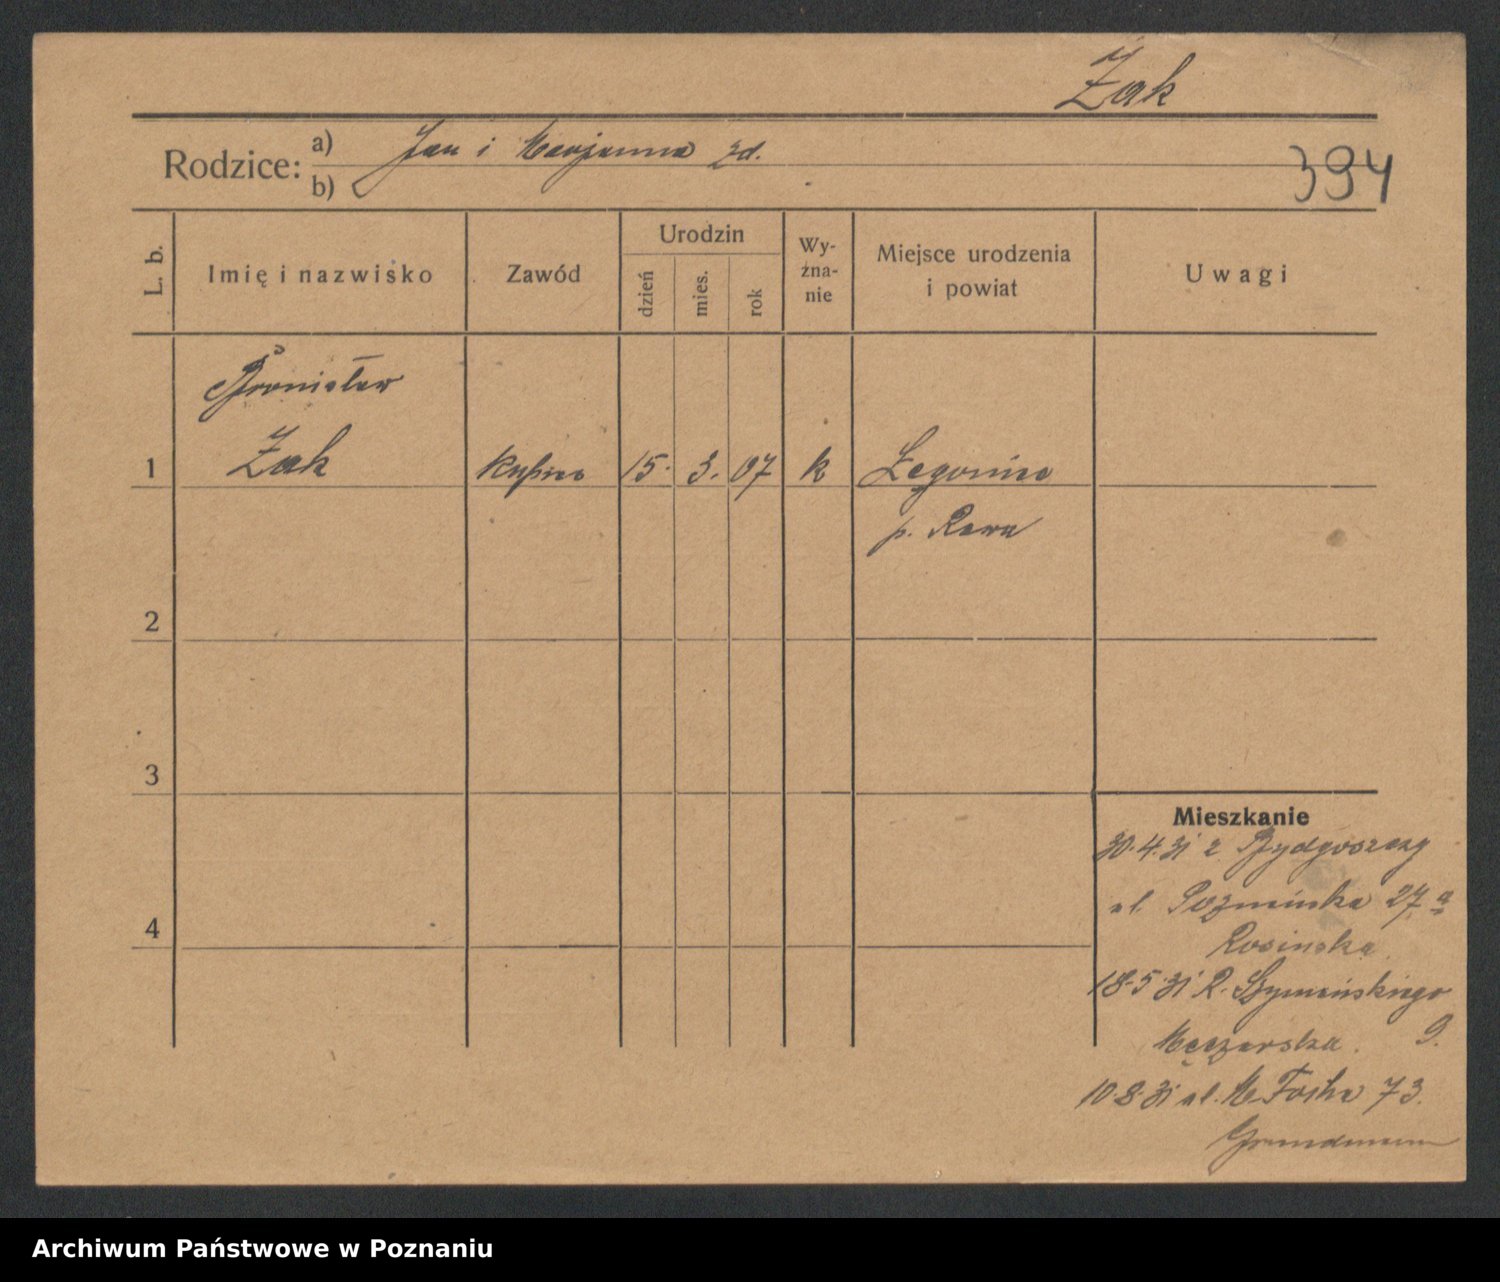 Żak
Rodzice: a) Jan i Marjanna zd.
b)
394
L. b.
Imię i nazwisko
Zawód
Urodzin
dzień
mies.
rok
Wy-
zna-
nie
Miejsce urodzenia
i powiat
Uwagi
Bronisław
1 Żak kupiec 15. 3. 07 k Łęgonice
p. Rawa
2
3
4
Mieszkanie
30.4.31 z Bydgoszczy
ul. Poznańska 27 a
Rosinska
18.5.31 R. Szymańskiego
9.
10.8.31 ul. M. Focha 73.
Grundmann
Archiwum Państwowe w Poznaniu